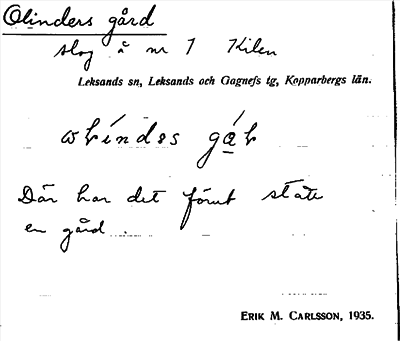 Olinders gård
slog å nr 1 Kilen
Leksands sn, Leksands och Gagnefs tg, Kopparbergs län.
Där har det förut ståte
en gård.
ERIK M. CARLSSON, 1935.